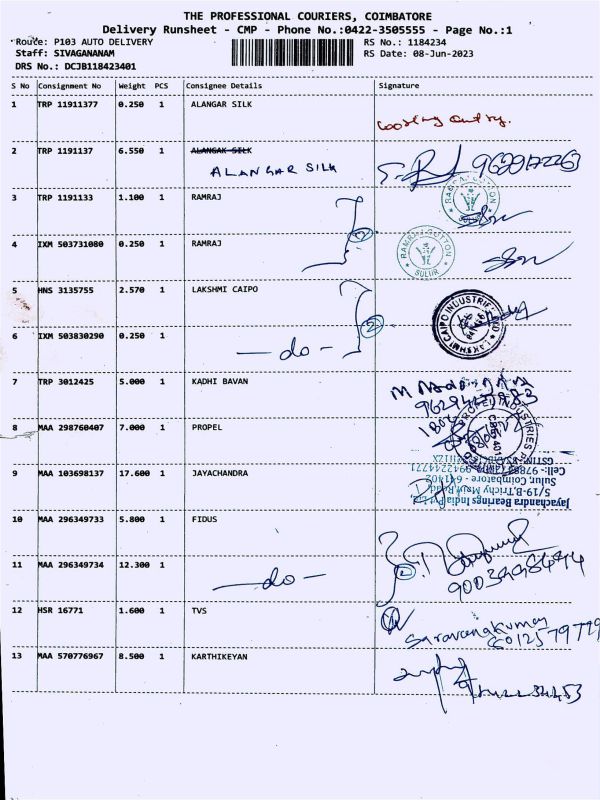 THE PROFESSIONAL COURIERS, COIMBATORE
Delivery Runsheet - CMP - Phone No.:0422-3505555 - Page No.:1
Route: P103 AUTO DELIVERY RS No.: 1184234
Staff: SIVAGANANAM RS Date: 08-Jun-2023
DRS No.: DCJB118423401
S No Consignment No Weight PCS Consignee Details Signature
1 TRP 11911377 0.250 1 ALANGAR SILK
2 TRP 1191137 6.550 1 ALANGAR SILK
ALANGAR SILK
3 TRP 1191133 1.100 1 RAMRAJ
RAMRAJ COTTON SULUR
4 IXM 503731080 0.250 1 RAMRAJ
RAMRAJ COTTON SULUR
5 HNS 3135755 2.570 1 LAKSHMI CAIPO
LAKSHMI CAIPO INDUSTRIES
6 IXM 503830290 0.250 1
-do-
7 TRP 3012425 5.000 1 KADHI BAVAN
8 MAA 298760407 7.000 1 PROPEL
PROPEL INDUSTRIES
9 MAA 103698137 17.600 1 JAYACHANDRA
Jayachandra Bearings India Pvt Ltd
5/19-B, Trichy Main Road,
Sulur, Coimbatore - 641402
10 MAA 296349733 5.800 1 FIDUS
11 MAA 296349734 12.300 1
-do-
12 HSR 16771 1.600 1 TVS
Saravanakumar
13 MAA 570776967 8.500 1 KARTHIKEYAN